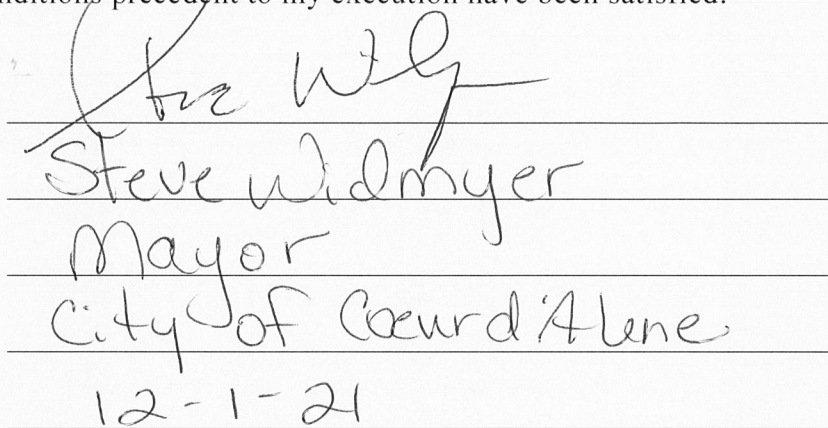 nditions precedent to my execution have been satisfied.
Steve Widmyer
Mayor
City of Coeur d'Alene
12-1-21